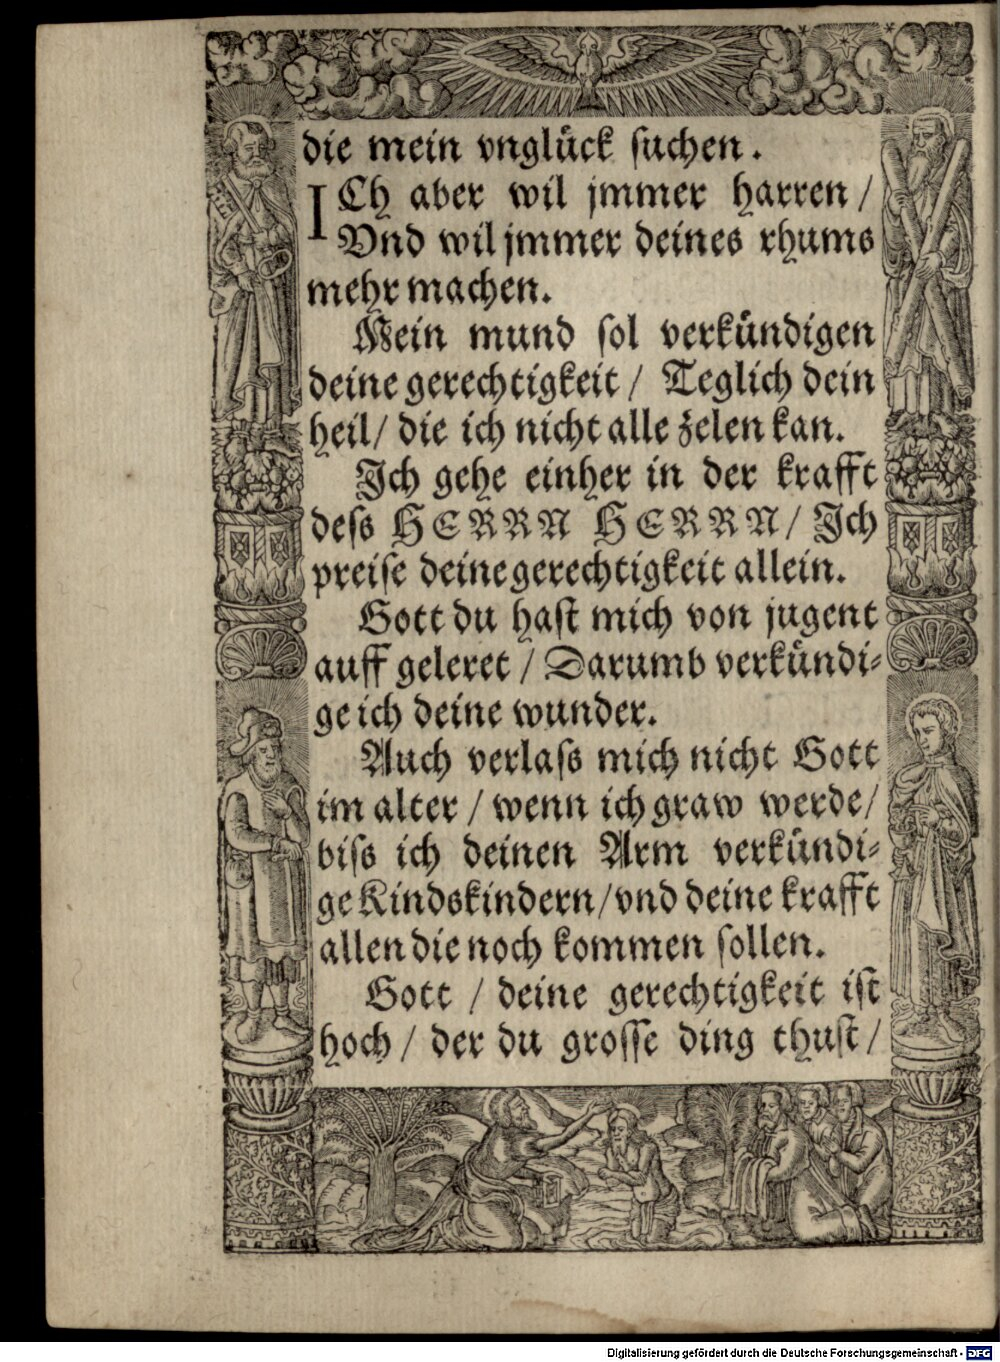 die mein vnglück suchen.
ICh aber wil jmmer harren /
Vnd wil jmmer deines rhums
mehr machen.
Mein mund sol verkündigen
deine gerechtigkeit / Teglich dein
heil / die ich nicht alle zelen kan.
Ich gehe einher in der krafft
dess HERRN HERRN / Ich
preise deine gerechtigkeit allein.
Gott du hast mich von jugent
auff geleret / Darumb verkündi-
ge ich deine wunder.
Auch verlass mich nicht Gott
im alter / wenn ich graw werde /
biss ich deinen Arm verkündi-
ge Kindskindern / vnd deine krafft
allen die noch kommen sollen.
Gott / deine gerechtigkeit ist
hoch / der du grosse ding thust /
Digitalisierung gefördert durch die Deutsche Forschungsgemeinschaft - DFG